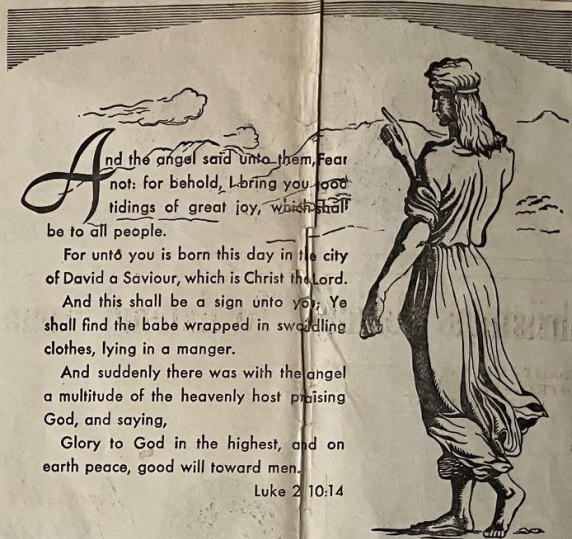 And the angel said unto them, Fear
not: for behold, I bring you good
tidings of great joy, which shall
be to all people.
For unto you is born this day in the city
of David a Saviour, which is Christ the Lord.
And this shall be a sign unto you; Ye
shall find the babe wrapped in swaddling
clothes, lying in a manger.
And suddenly there was with the angel
a multitude of the heavenly host praising
God, and saying,
Glory to God in the highest, and on
earth peace, good will toward men.
Luke 2 10:14